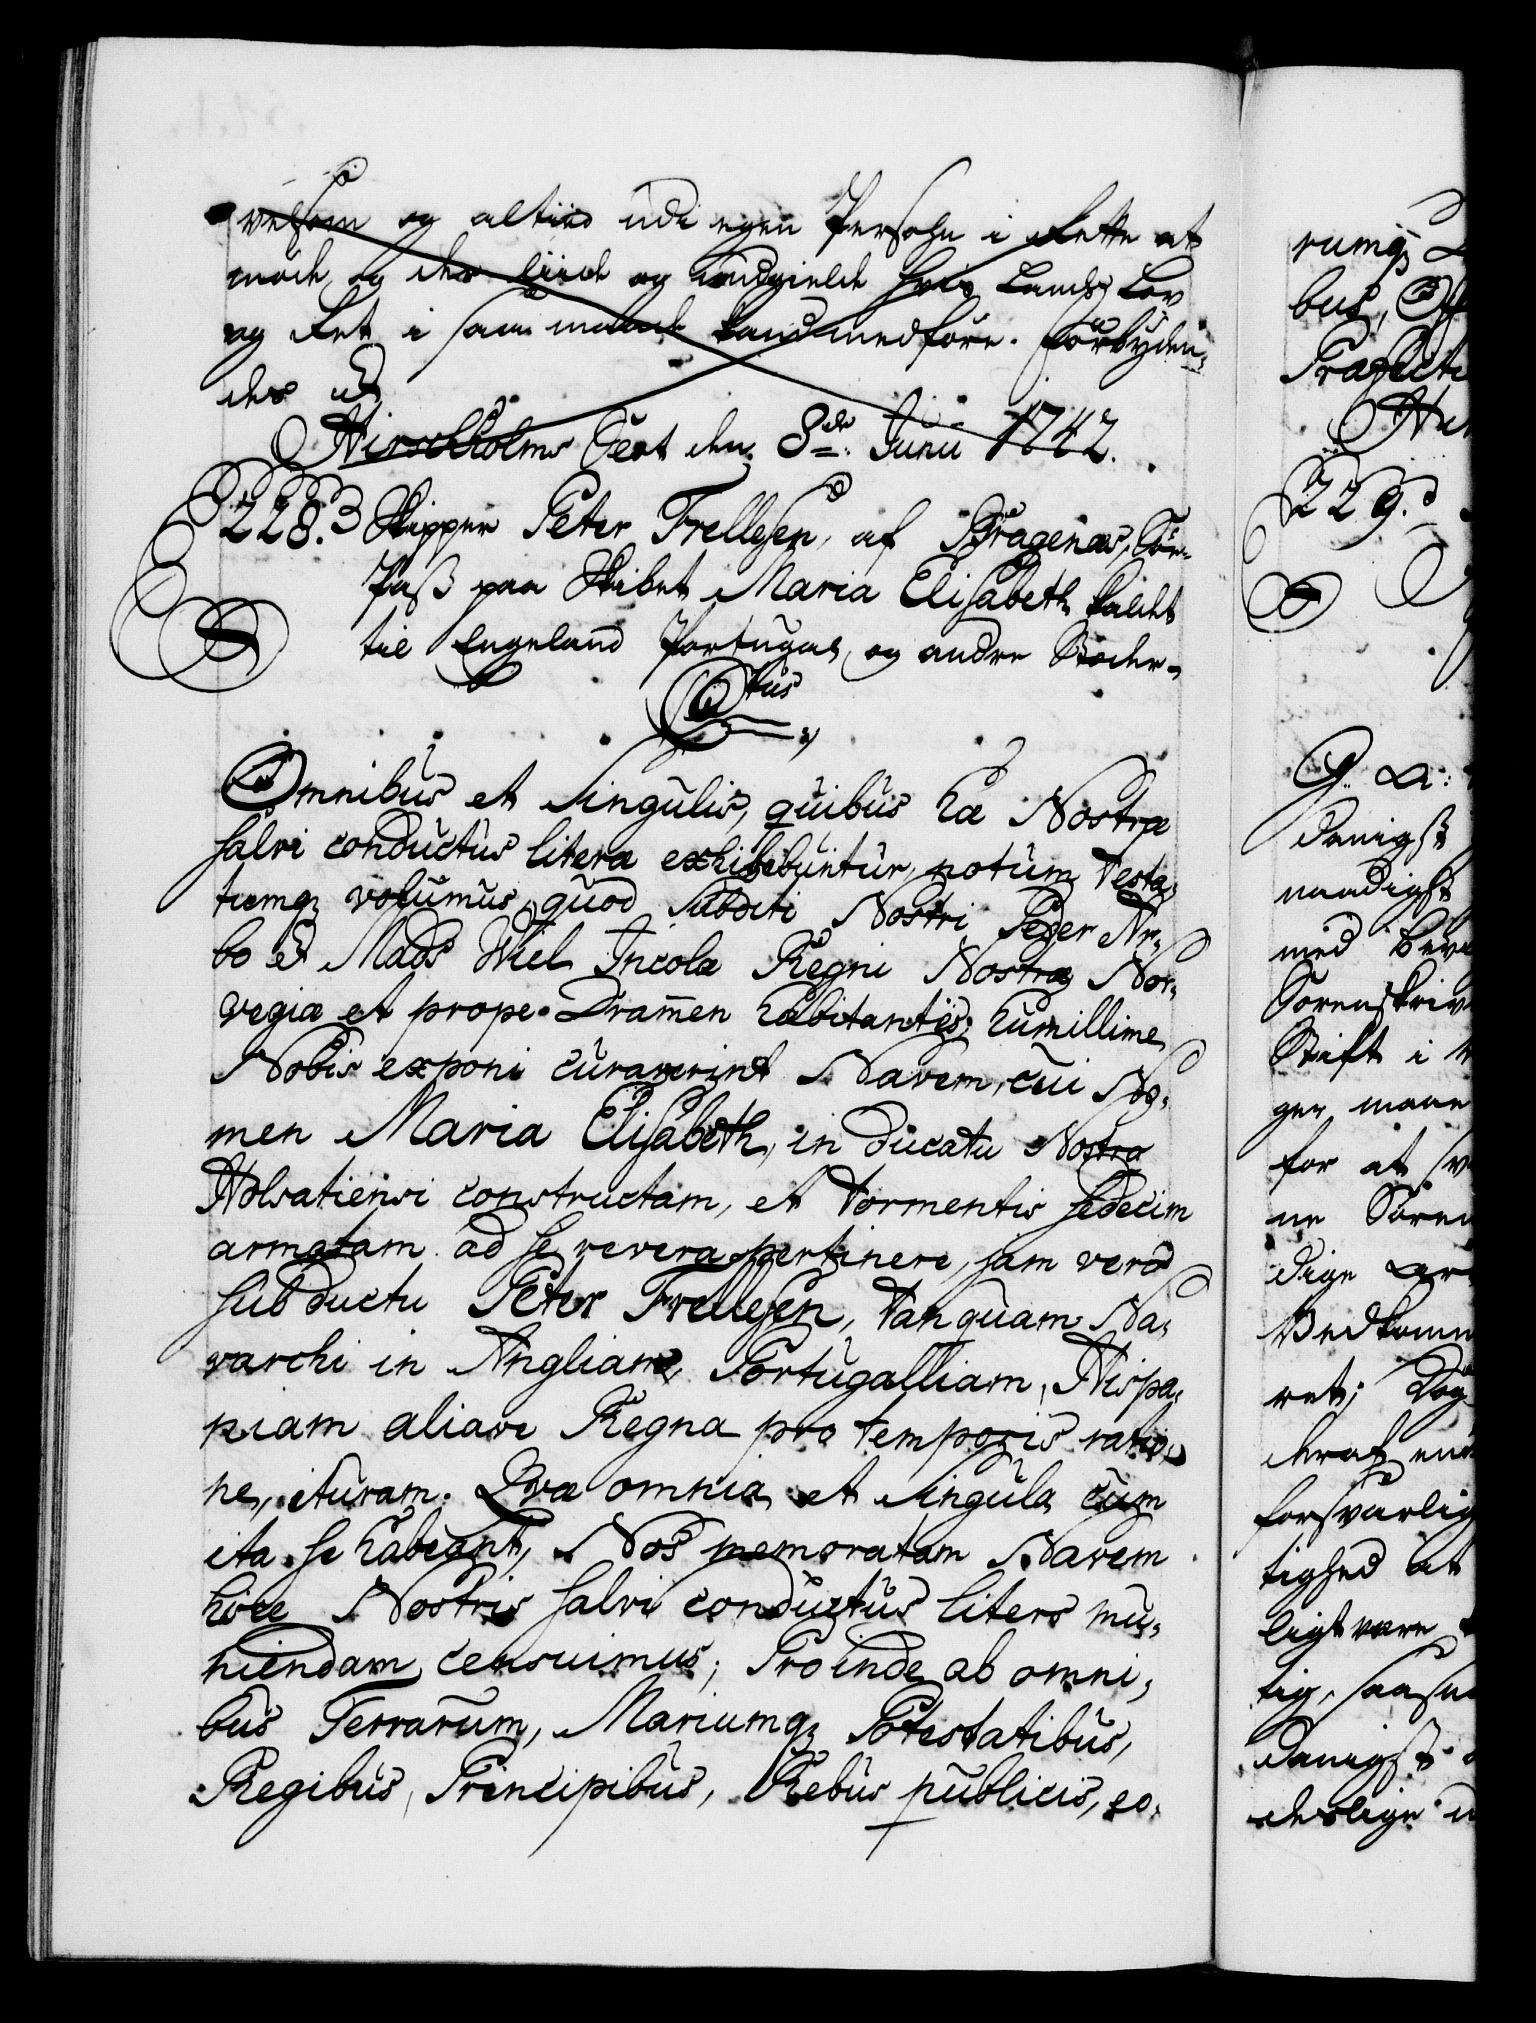 velsom og altiid udi egen Persohn i Rette at
møde, og der liide og undgielde hvis Lands Lov
og Ret i saa maade kand medføre. Forbyden-
des &
Hirschholms Slot den 8de Junii 1742.
228. Skipper Peter Frellesen, af Bragenæs, Søe-
Pass paa Skibet Maria Elisabeth kaldet
til Engeland Portugal, og andre Stæder.
C6tus
Omnibus et singulis, quibus hæ Nostræ
salvi conductus literæ exhibebuntur, notum testa-
tumq; volumus, quod subditi Nostri Peder Ar-
bo & Mads Wiel Incolæ Regni Nostræ Nor-
vegiæ et prope Dramen habitantes, humillime
Nobis exponi curaverint Navem, cui No-
men Maria Elisabeth, in ducatu Nostra
Holsatiensi constructam, et tormentis sedecim
armatam ad se revera pertinere, jam vero
sub ductu Peter Frellesen, tanquam Na-
varchi in Angliam, Portugalliam, Hispa-
niam aliave Regna pro temporis ratio-
ne, ituram. Qvæ omnia et singula cum
ita se habeant, Nos memoratam Navem
hisce Nostris salvi conductus liters mu-
niendam censuimus; Proinde ab omni-
bus Terrarum, Mariumq; Potestatibus,
Regibus, Principibus, Rebus publicis, eo-
rumq;
bus,
Præfecti
229.
G. a:
danigst
naadigst
med
Sorenskriv
Stift i
ger, maae
for at
ne Soren
dige
Vedkomm
ret; Dog
forsvarlig
tighed at
ligt være
tig, saasom
danigst
deslige